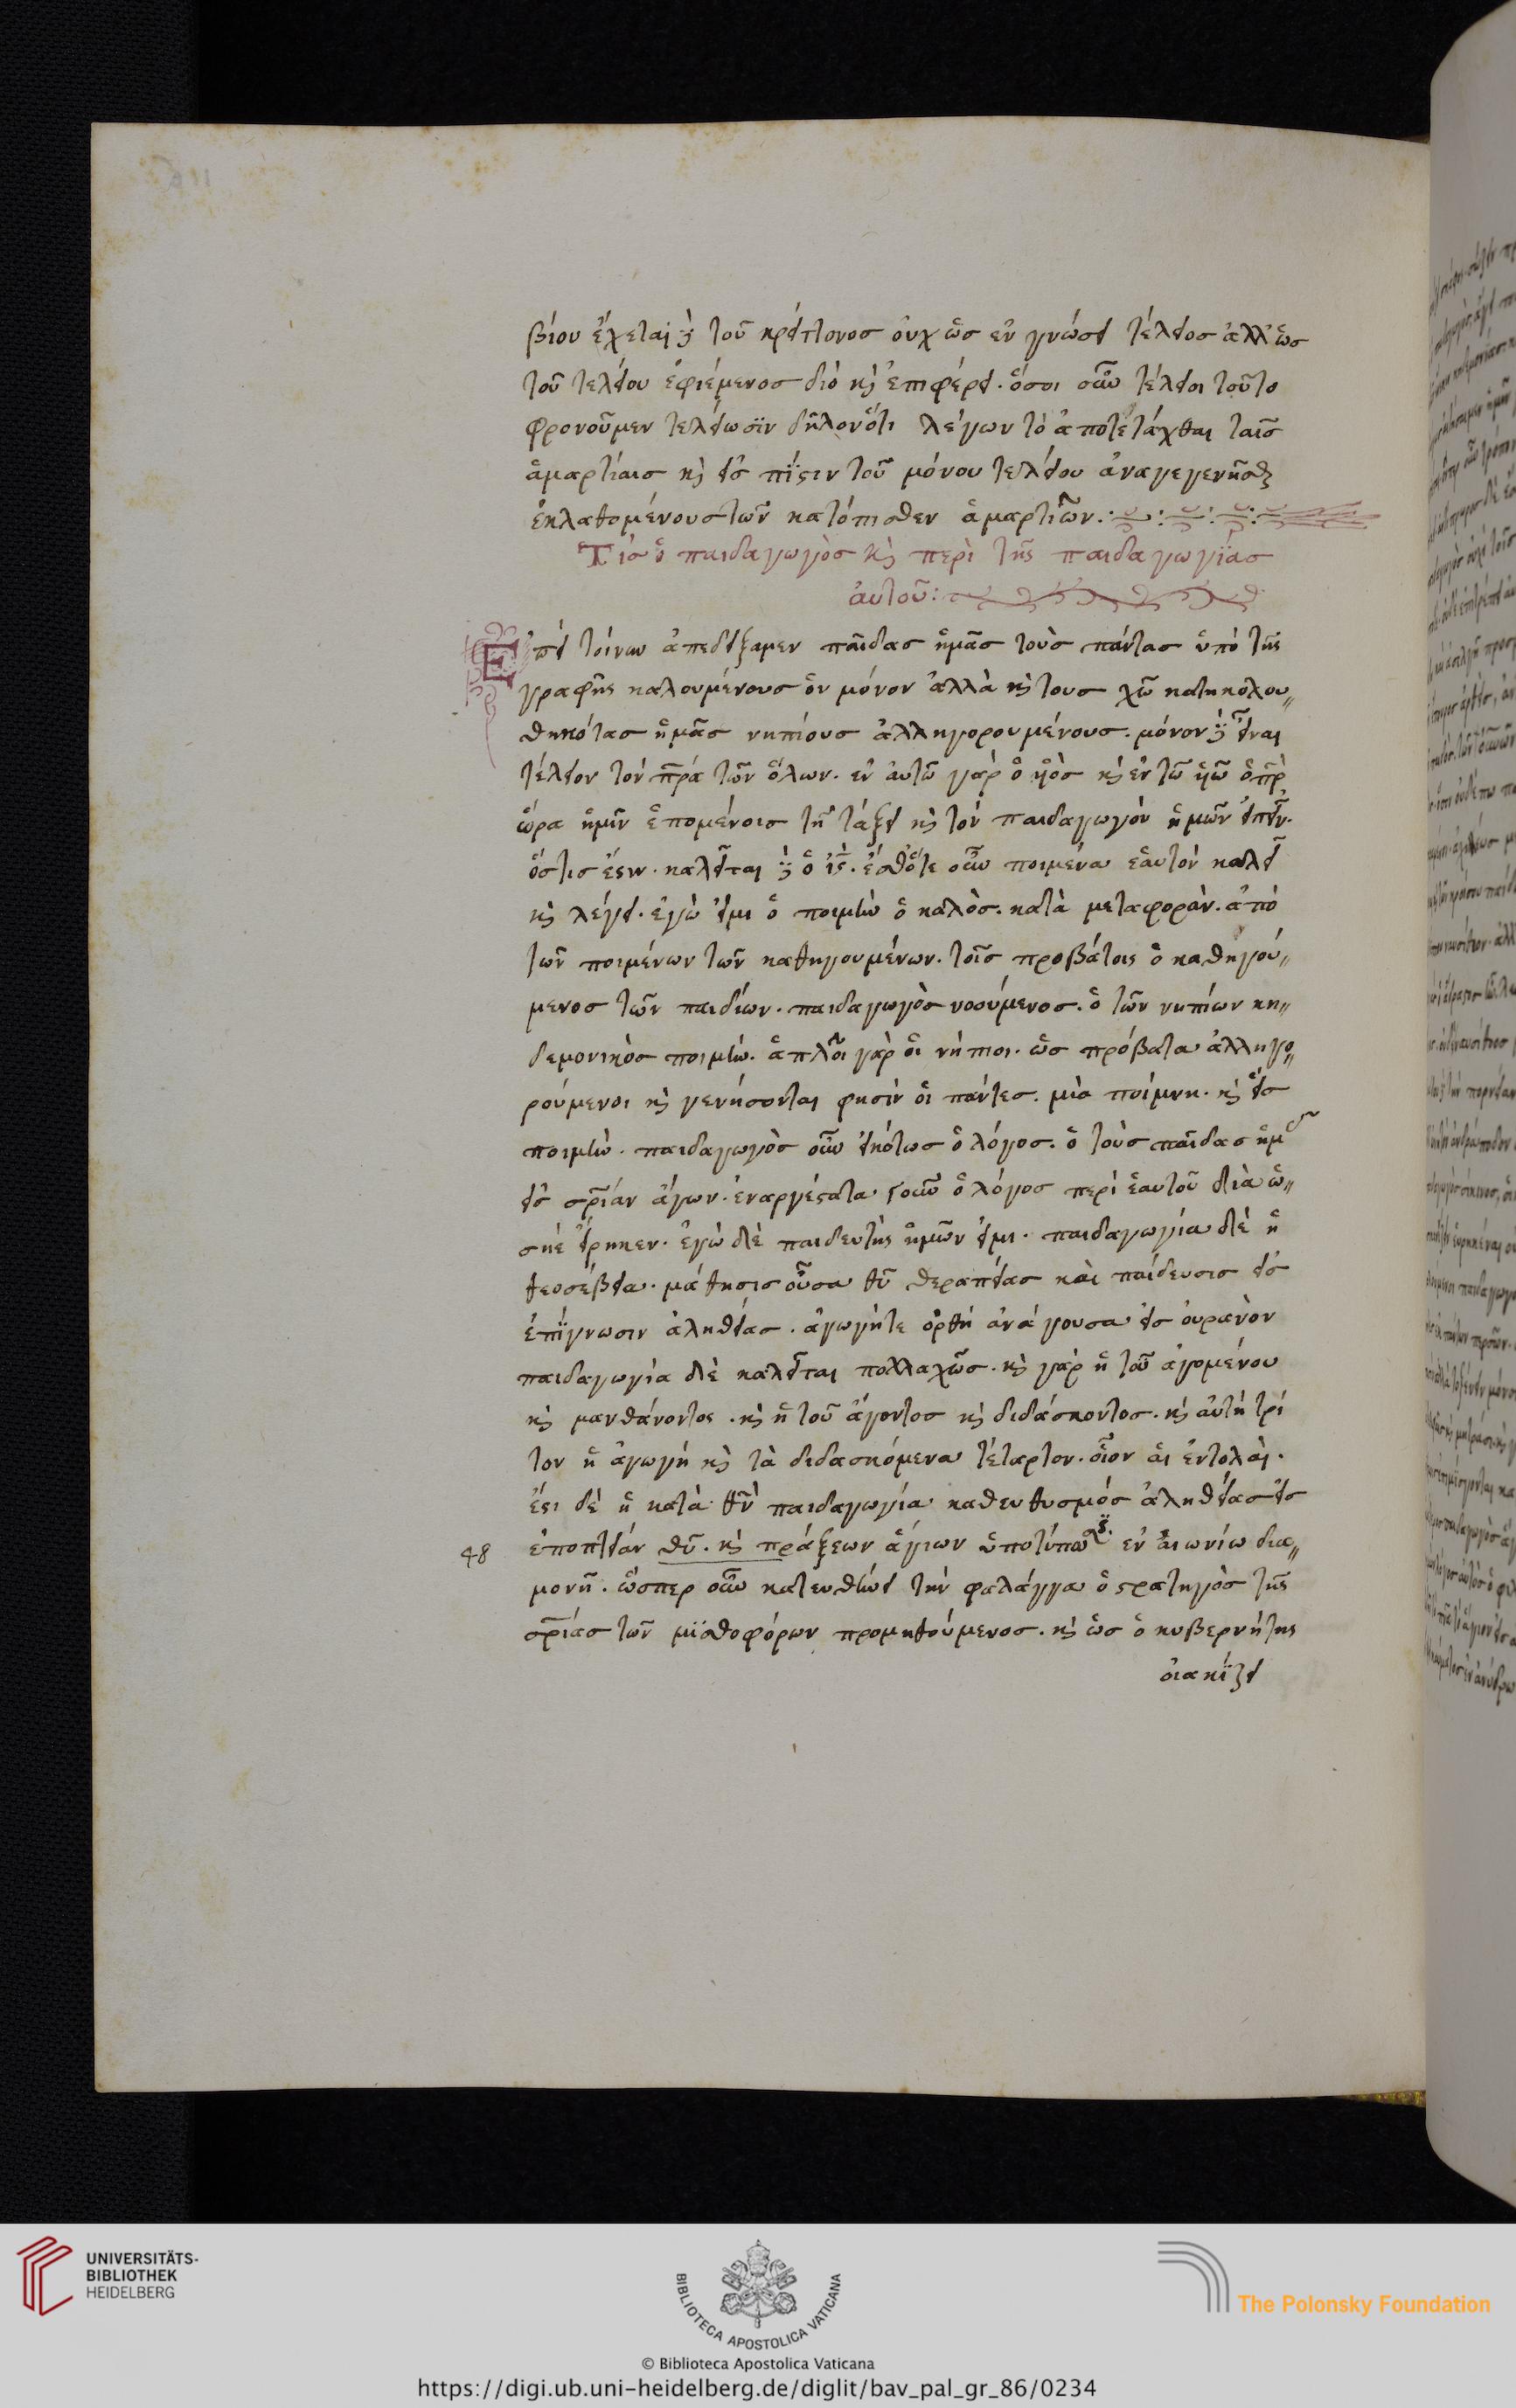 βίου ἔχεται δὲ τοῦ κρείττονος οὐχ ὡς ἐν γνώσει τέλειος ἀλλ' ὡς
τοῦ τελείου ἐφιέμενος διὸ κὶ ἐπιφέρει· ὅσοι οὖν τέλειοι τοῦτο
φρονοῦμεν τελείωσϊν δηλονότι λέγων τὸ ἀποτετάχθαι ταῖς
ἁμαρτίαις κὶ εἰς πίστιν τοῦ μόνου τελείου ἀναγεγενῆσθαι
ἐκλαθομένους τῶν κατόπισθεν ἁμαρτιῶν.
Τίς ὁ παιδαγωγὸς κὶ περὶ τῆς παιδαγωγίας
αὐτοῦ:
Ἐπεὶ τοίνυν ἀπεδείξαμεν παῖδας ἡμᾶς τοὺς πάντας ὑπὸ τῆς
γραφῆς καλουμένους οὐ μόνον ἀλλὰ κὶ τους χῶ κατηκολου
θηκότας ἡμᾶς νηπίους ἀλληγορουμένους. μόνον δὲ εἶναι
τέλειον τὸν πρα τῶν ὅλων. ἐν αὐτῶ γὰρ ὁ υἱὸς κὶ ἐν τῶ υἱῶ ὁ πηρ
ὥρα ἡμῖν ἑπομένοις τῆ τάξει κὶ τὸν παιδαγωγὸν ἡμῶν εἰπεῖν.
ὅστις ἐστιν. καλεῖται δὲ ὁ ις. ἐσθότε οὖν ποιμένα ἑαυτὸν καλεῖ
κὶ λέγει. ἐγὼ εἰμι ὁ ποιμὴν ὁ καλὸς. κατὰ μεταφορὰν. ἀπὸ
τῶν ποιμένων τῶν καθηγουμένων. τοῖς προβάτοις ὁ καθηγού
μενος τῶν παιδίων. παιδαγωγὸς νοούμενος. ὁ τῶν νηπίων κη
δεμονικὸς ποιμὴν. ἁπλοῖ γὰρ οἱ νήπιοι. ὡς πρόβατα ἀλληγο
ρούμενοι κὶ γενήσονται φησὶν οἱ πάντες. μία ποίμνη. κὶ εἷς
ποιμὴν. παιδαγωγὸς οὖν εἰκότως ὁ λόγος. ὁ τοὺς παῖδας ἡμᾶς
εἰς σριαν ἄγων. ἐναργέστατα γοῦν ὁ λόγος περὶ ἑαυτοῦ διὰ ὡ
σηὲ εἴρηκεν. ἐγὼ δὲ παιδευτὴς ἡμῶν εἰμι. παιδαγωγία δὲ ἡ
θεοσέβεια. μάθησις οὖσα θυ θεραπείας καὶ παίδευσις εἰς
ἐπίγνωσιν ἀληθείας. ἀγωγήτε ὀρθὴ ἀνάγουσα εἰς οὐρανὸν
παιδαγωγία δὲ καλεῖται πολλαχῶς. κὶ γὰρ ἡ τοῦ ἀγομένου
κὶ μανθάνοντος. κὶ ἡ τοῦ ἄγοντος κὶ διδάσκοντος. κὶ αὐτὴ τρί
τον ἡ ἀγωγὴ κὶ τὰ διδασκόμενα τέταρτον. οἷον αἱ ἐντολαὶ.
ἔστι δὲ ἡ κατὰ θν παιδαγωγία κατευθυσμὸς ἀληθείας εἰς
48 ἐποπτείαν θυ. κὶ πράξεων ἁγίων ὑποτύπωσις ἐν αἰωνίω δια
μονῆ. ὥσπερ οὖν κατευθύνει τὴν φάλαγγα ὁ στρατηγὸς τῆς
σριας τῶν μϊσθοφόρων προμηθούμενος. κὶ ὡς ὁ κυβερνήτης
οἰακίζει
UNIVERSITÄTS-
BIBLIOTHEK
HEIDELBERG
BIBLIOTECA APOSTOLICA VATICANA
The Polonsky Foundation
© Biblioteca Apostolica Vaticana
https://digi.ub.uni-heidelberg.de/diglit/bav_pal_gr_86/0234